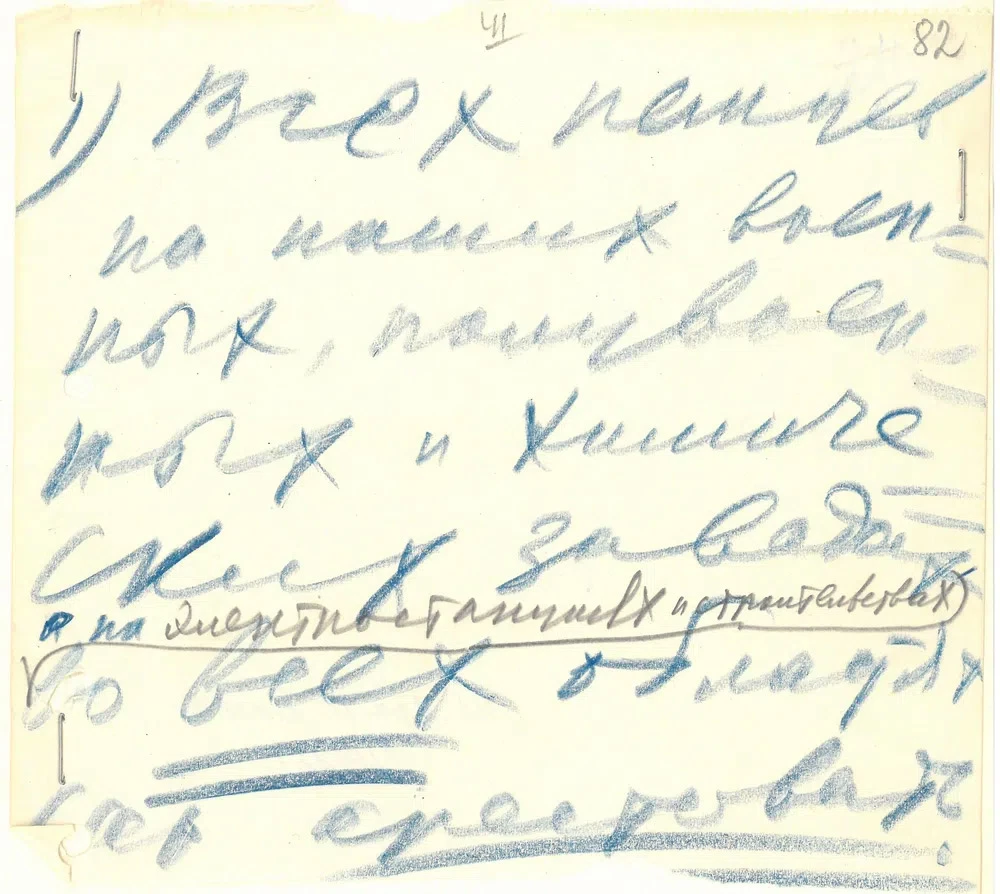 VI
82
1) Всех немцев
на наших воен-
ных, полувоен-
ных и химиче-
ских заводах
и на электростанциях и строительствах)
во всех областях
всех арестовать.